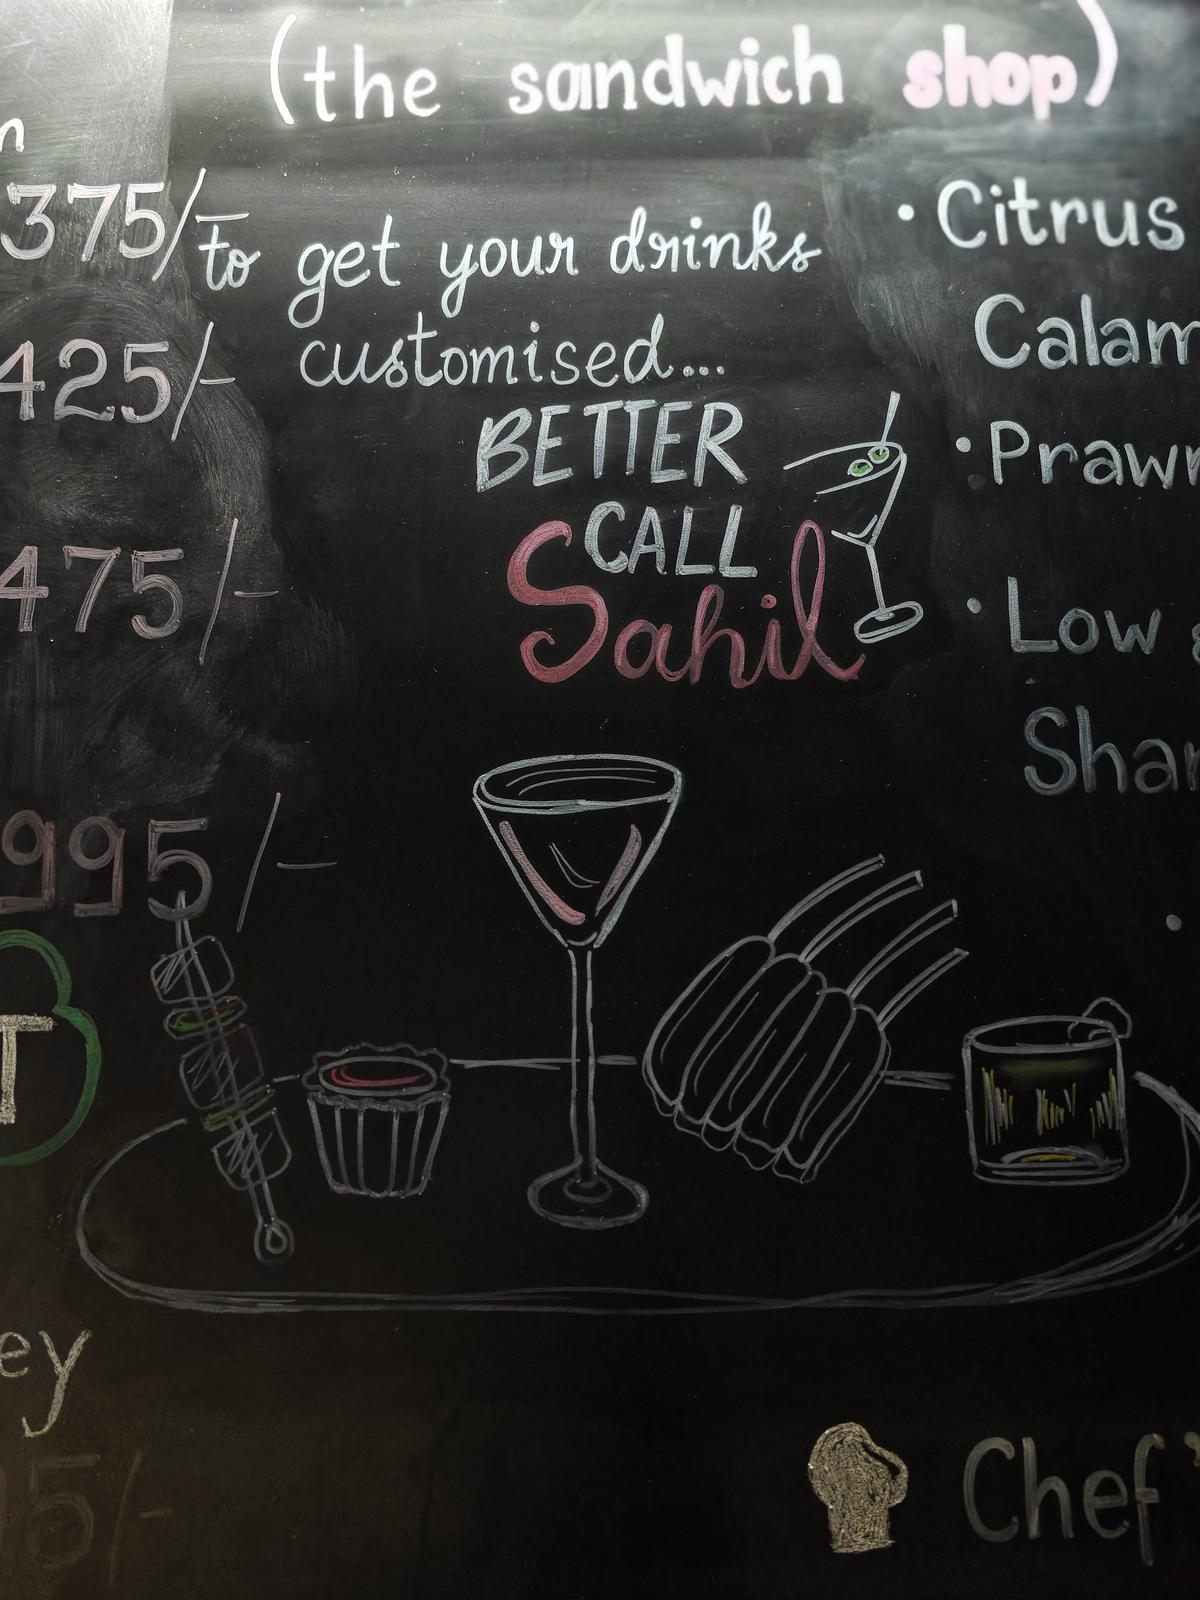 (the sandwich shop)
n
375/-
to get your drinks
customised...
BETTER
CALL
Sahil
425/-
475/-
995/-
T
ey
5/-
• Citrus
Calam
• Prawn
• Low
Shar
•
Chef'